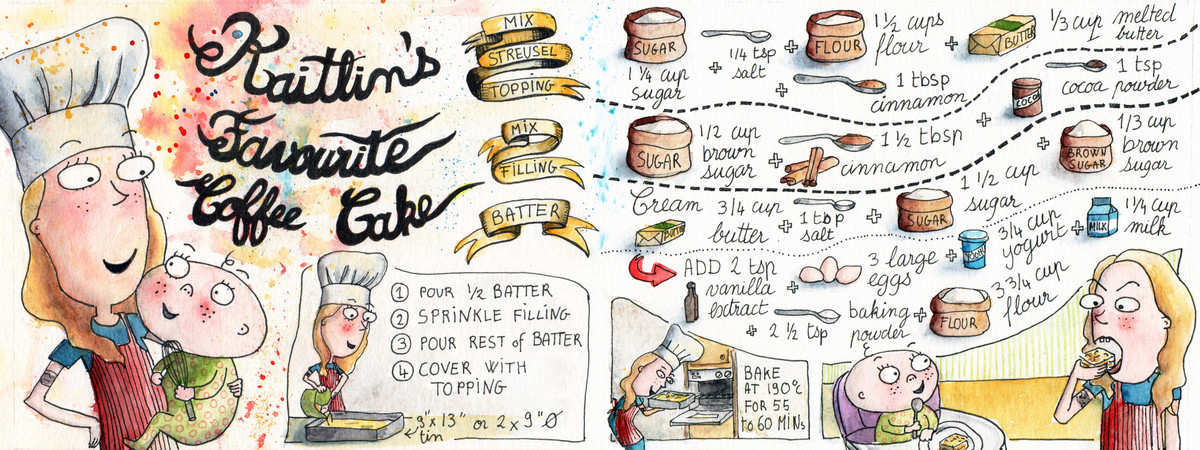 Kaitlin's
Favourite
Coffee Cake
MIX
STREUSEL
TOPPING
SUGAR
1 1/4 cup
sugar
+
1/4 tsp
salt
+
FLOUR
1 1/2 cups
flour
+
BUTTER
1/3 cup melted
butter
+
1 tbsp
cinnamon
MIX
FILLING
SUGAR
1/2 cup
brown
sugar
+
1 1/2 tbsp
cinnamon
+
COCOA
1 tsp
cocoa powder
+
BROWN
SUGAR
1/3 cup
brown
sugar
BATTER
Cream
BUTTER
3/4 cup
butter
+
1 tsp
salt
+
SUGAR
1 1/2 cup
sugar
ADD 2 tsp
vanilla
extract
+
3 large
eggs
+
3/4 cup
yogurt
+
MILK
1 1/4 cup
milk
+ 2 1/2 tsp
baking
powder
+
FLOUR
3 3/4 cup
flour
1 POUR 1/2 BATTER
2 SPRINKLE FILLING
3 POUR REST of BATTER
4 COVER WITH
TOPPING
9"x 13" or 2 x 9"Ø
tin
BAKE
AT 190°C
FOR 55
to 60 MINs